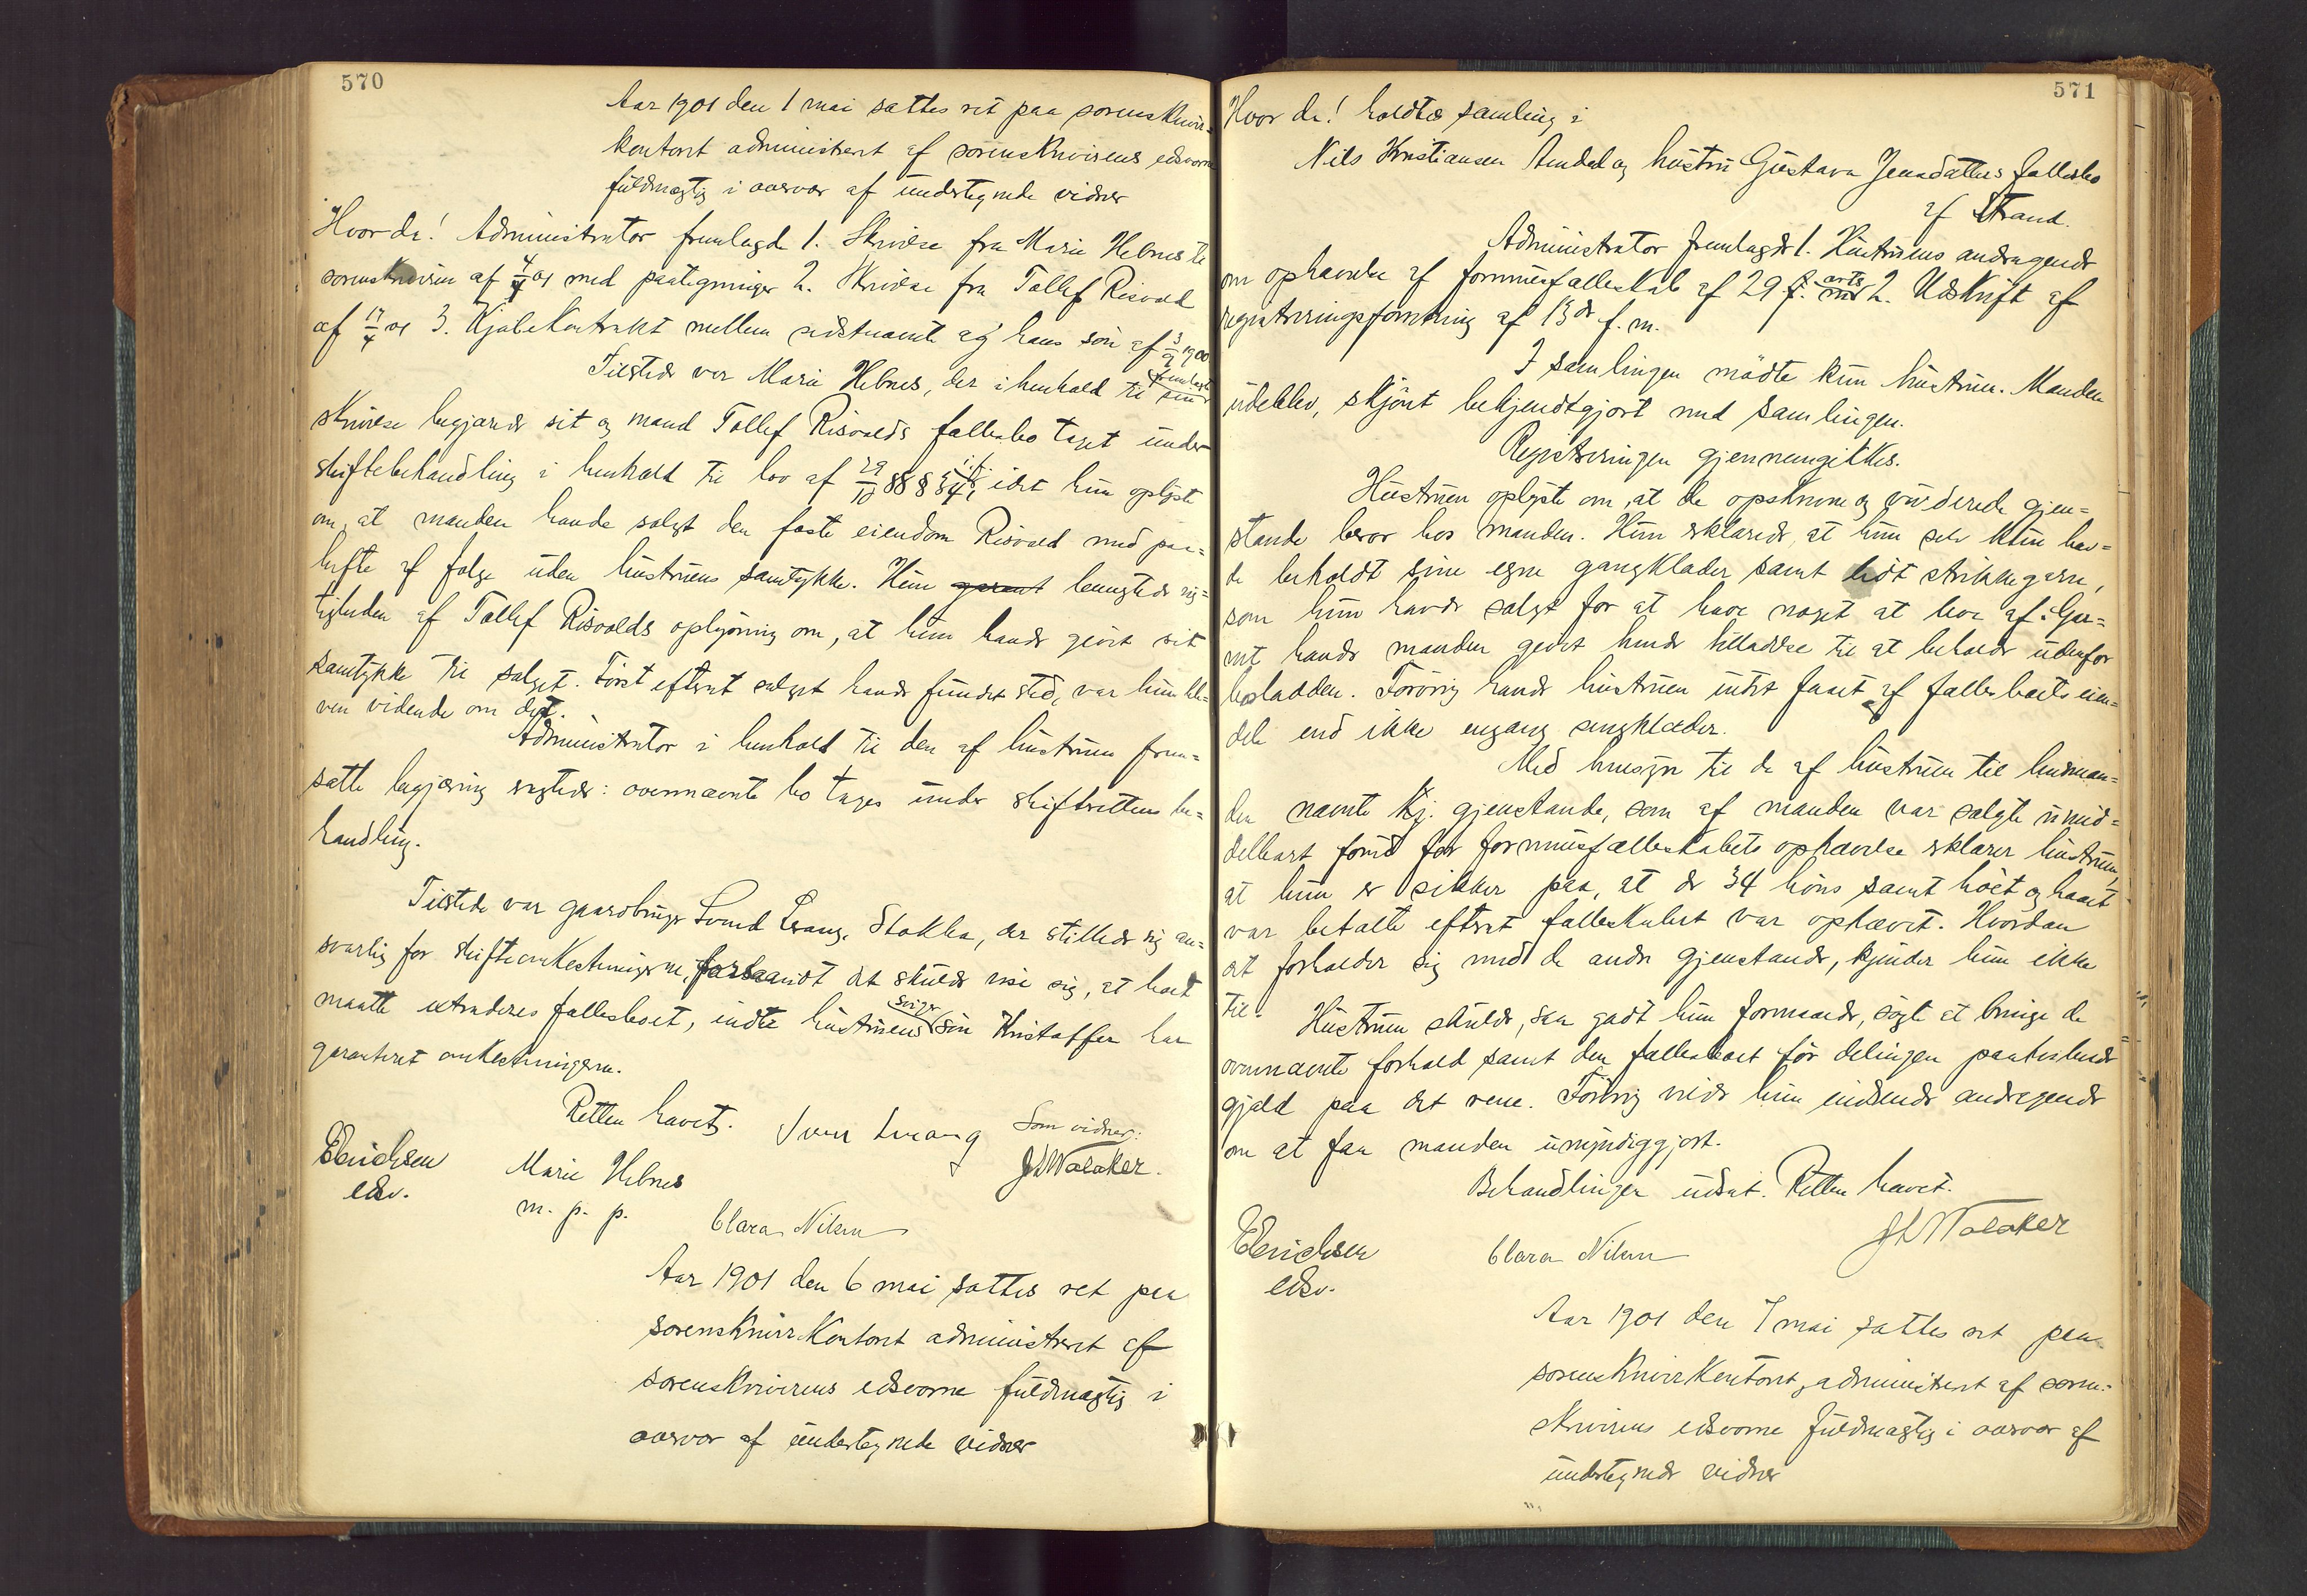 570
Aar 1901 den 1 mai sattes ret paa sorenskriver=
kontoret administrert af sorenskriverens edsvorne
fuldmægtig i overvær af undertegnede vidner
Hvorda! Administrator fremlagde 1. Skrivelse fra Marie Hebnes til
sorenskriveren af 4/4 01 med paategninger 2. Skrivelse fra Tollef Risvold
af 17/4 01 3. Kjøbekontrakt mellem sidstnævnte og hans søn af 3/9 1900
Tilstede var Marie Hebnes, der i henhold til fremlagte
skrivelse begjærede sit og mand Tollef Risvolds fællesbo taget under
skiftebehandling i henhold til lov af 29/10 88 § 34, idet hun oplyste
om, at manden havde solgt den faste eiendom Risvold med paa=
hefte af følge uden hustruens samtykke. Hun benegtede rig=
tigheden af Tollef Risvolds oplysning om, at hun havde givet sit
samtykke til salget. Først efterat salget havde fundet sted, var hun ble=
ven vidende om det.
Administrator i henhold til den af hustruen frem=
satte begjæring vegtede: ovennævnte bo tages under skifterettens be=
handling.
Tilstede var gaardbruger Svend Lvang, Stakka, der stillede sig an=
svarlig for skifteomkostningerne, forsaavidt det skulde vise sig, at boet
maatte extraderes fællesboet, indtil hustruens sviger søn Kristoffer har
garanteret omkostningerne.
Retten hævet.
Som vidner:
EErichsen
edsv.
Marie Hebnes
m. p. p.
Clara Nilsen
JLWalaker.
Aar 1901 den 6 mai sattes ret paa
sorenskriverkontoret administreret af
sorenskriverens edsvorne fuldmægtig i
overvær af undertegnede vidner
571
Hvor da! holdtes samling i
Nils Kristiansen Amdal og hustru Gustava Jensdatters fællesbo
af Strand.
Administrator fremlagde 1. Hustruens andragende
om ophævelse af formuesfællesskab af 29 f. arts 2. Udskrift af
registreringsforretning af 13de f. m.
I samlingen mødte kun hustruen. Manden
udeblev, skjønt bekjendtgjort med samlingen.
Registreringen gjennemgikkes.
Hustruen oplyste om, at de opskrevne og vurderede gjen=
stande beror hos manden. Hun erklærede, at hun selv kun hav=
de beholdt sine egne gangklæder samt lidt strikkegarn,
som hun havde solgt for at have noget at leve af. Gar=
net havde manden givet hende tilladelse til at beholde udenfor
bosladden. Forøvrig havde hustruen intet faaet af fællesboets eien=
dele end ikke engang sengklæder.
Med hensyn til de af hustruen til lensman=
den nævnte kj. gjenstande, som af manden var solgte umid=
delbart forud for formuesfællesskabets ophævelse erklærer hustruen,
at hun er sikker paa, at de 34 höns samt höet og haaet
var betalte efterat fællesskabet var ophævet. Hvordan
det forholder sig med de andre gjenstande, kjender hun ikke
til. Hustruen skulde, saa godt hun formaaede, søge at bringe de
ovennævnte forhold samt den fællesboet før delingen paahvilende
gjæld paa det rene. Forøvrig vilde hun indsende andragende
om at faa manden umyndiggjort.
Behandlingen udsat. Retten hævet.
EErichsen
edsv.
Clara Nilsen
JLWalaker
Aar 1901 den 7 mai sattes ret paa
sorenskriverkontoret, administreret af soren=
skriverens edsvorne fuldmægtig i overvær af
undertegnede vidner